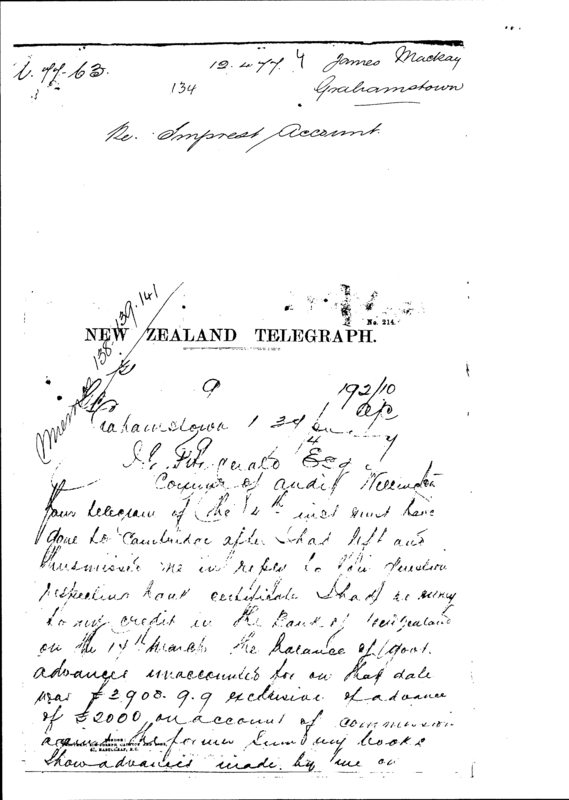 77-63. 12.4.77 James Mackay
134 Grahamstown
Re. Imprest Account.
No. 214.
NEW ZEALAND TELEGRAPH.
Memos 138.139.141
9 192/10
Grahamstown 1 34
J.E. FitzGerald Esq
of audit Wellington
Your telegram of the 4th inst must have
gone to Cambridge after I had left and
thus missed me in reply to your question
respecting bank certificate I had no money
to my credit in the Bank of New Zealand
on the 14th March the balance of Govt.
advances unaccounted for on that date
was £2908.9.9 exclusive of advance
of £2000 on account of commission
the former sum my books
Show advances made by me on